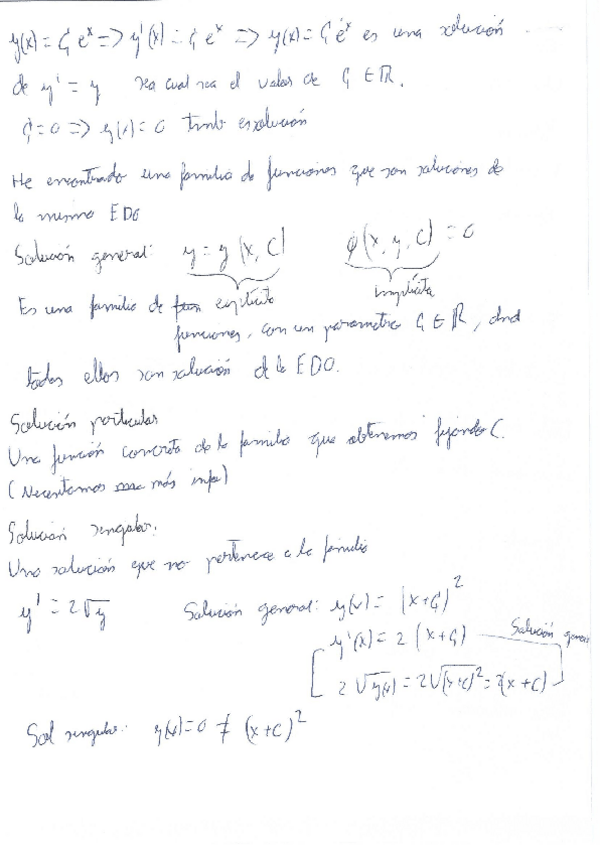 y(x) = C₁ eˣ => y'(x) = C₁ eˣ => y(x) = C₁ eˣ es una solución
de y' = y sea cual sea el valor de C₁ ∈ ℝ.
C₁ = 0 => y(x) = 0 tmb es solución
He encontrado una familia de funciones que son soluciones de
la misma EDO
Solución general: y = y(x, C) φ(x, y, C) = 0
explícita implícita
Es una familia de funciones, con un parametro C₁ ∈ ℝ, dnd
todas ellas son solución d la EDO.
Solución particular
Una función concreta de la familia que obtenemos fijando C.
(Necesitamos más info)
Solución singular.
Una solución que no pertenece a la familia
y' = 2√y Solución general: y(x) = (x+C₁)²
y'(x) = 2 (x+C₁) Solución general
2√y(x) = 2√(x+C)² = 2(x+C)
Sol singular: y(x) = 0 ≠ (x+C)²